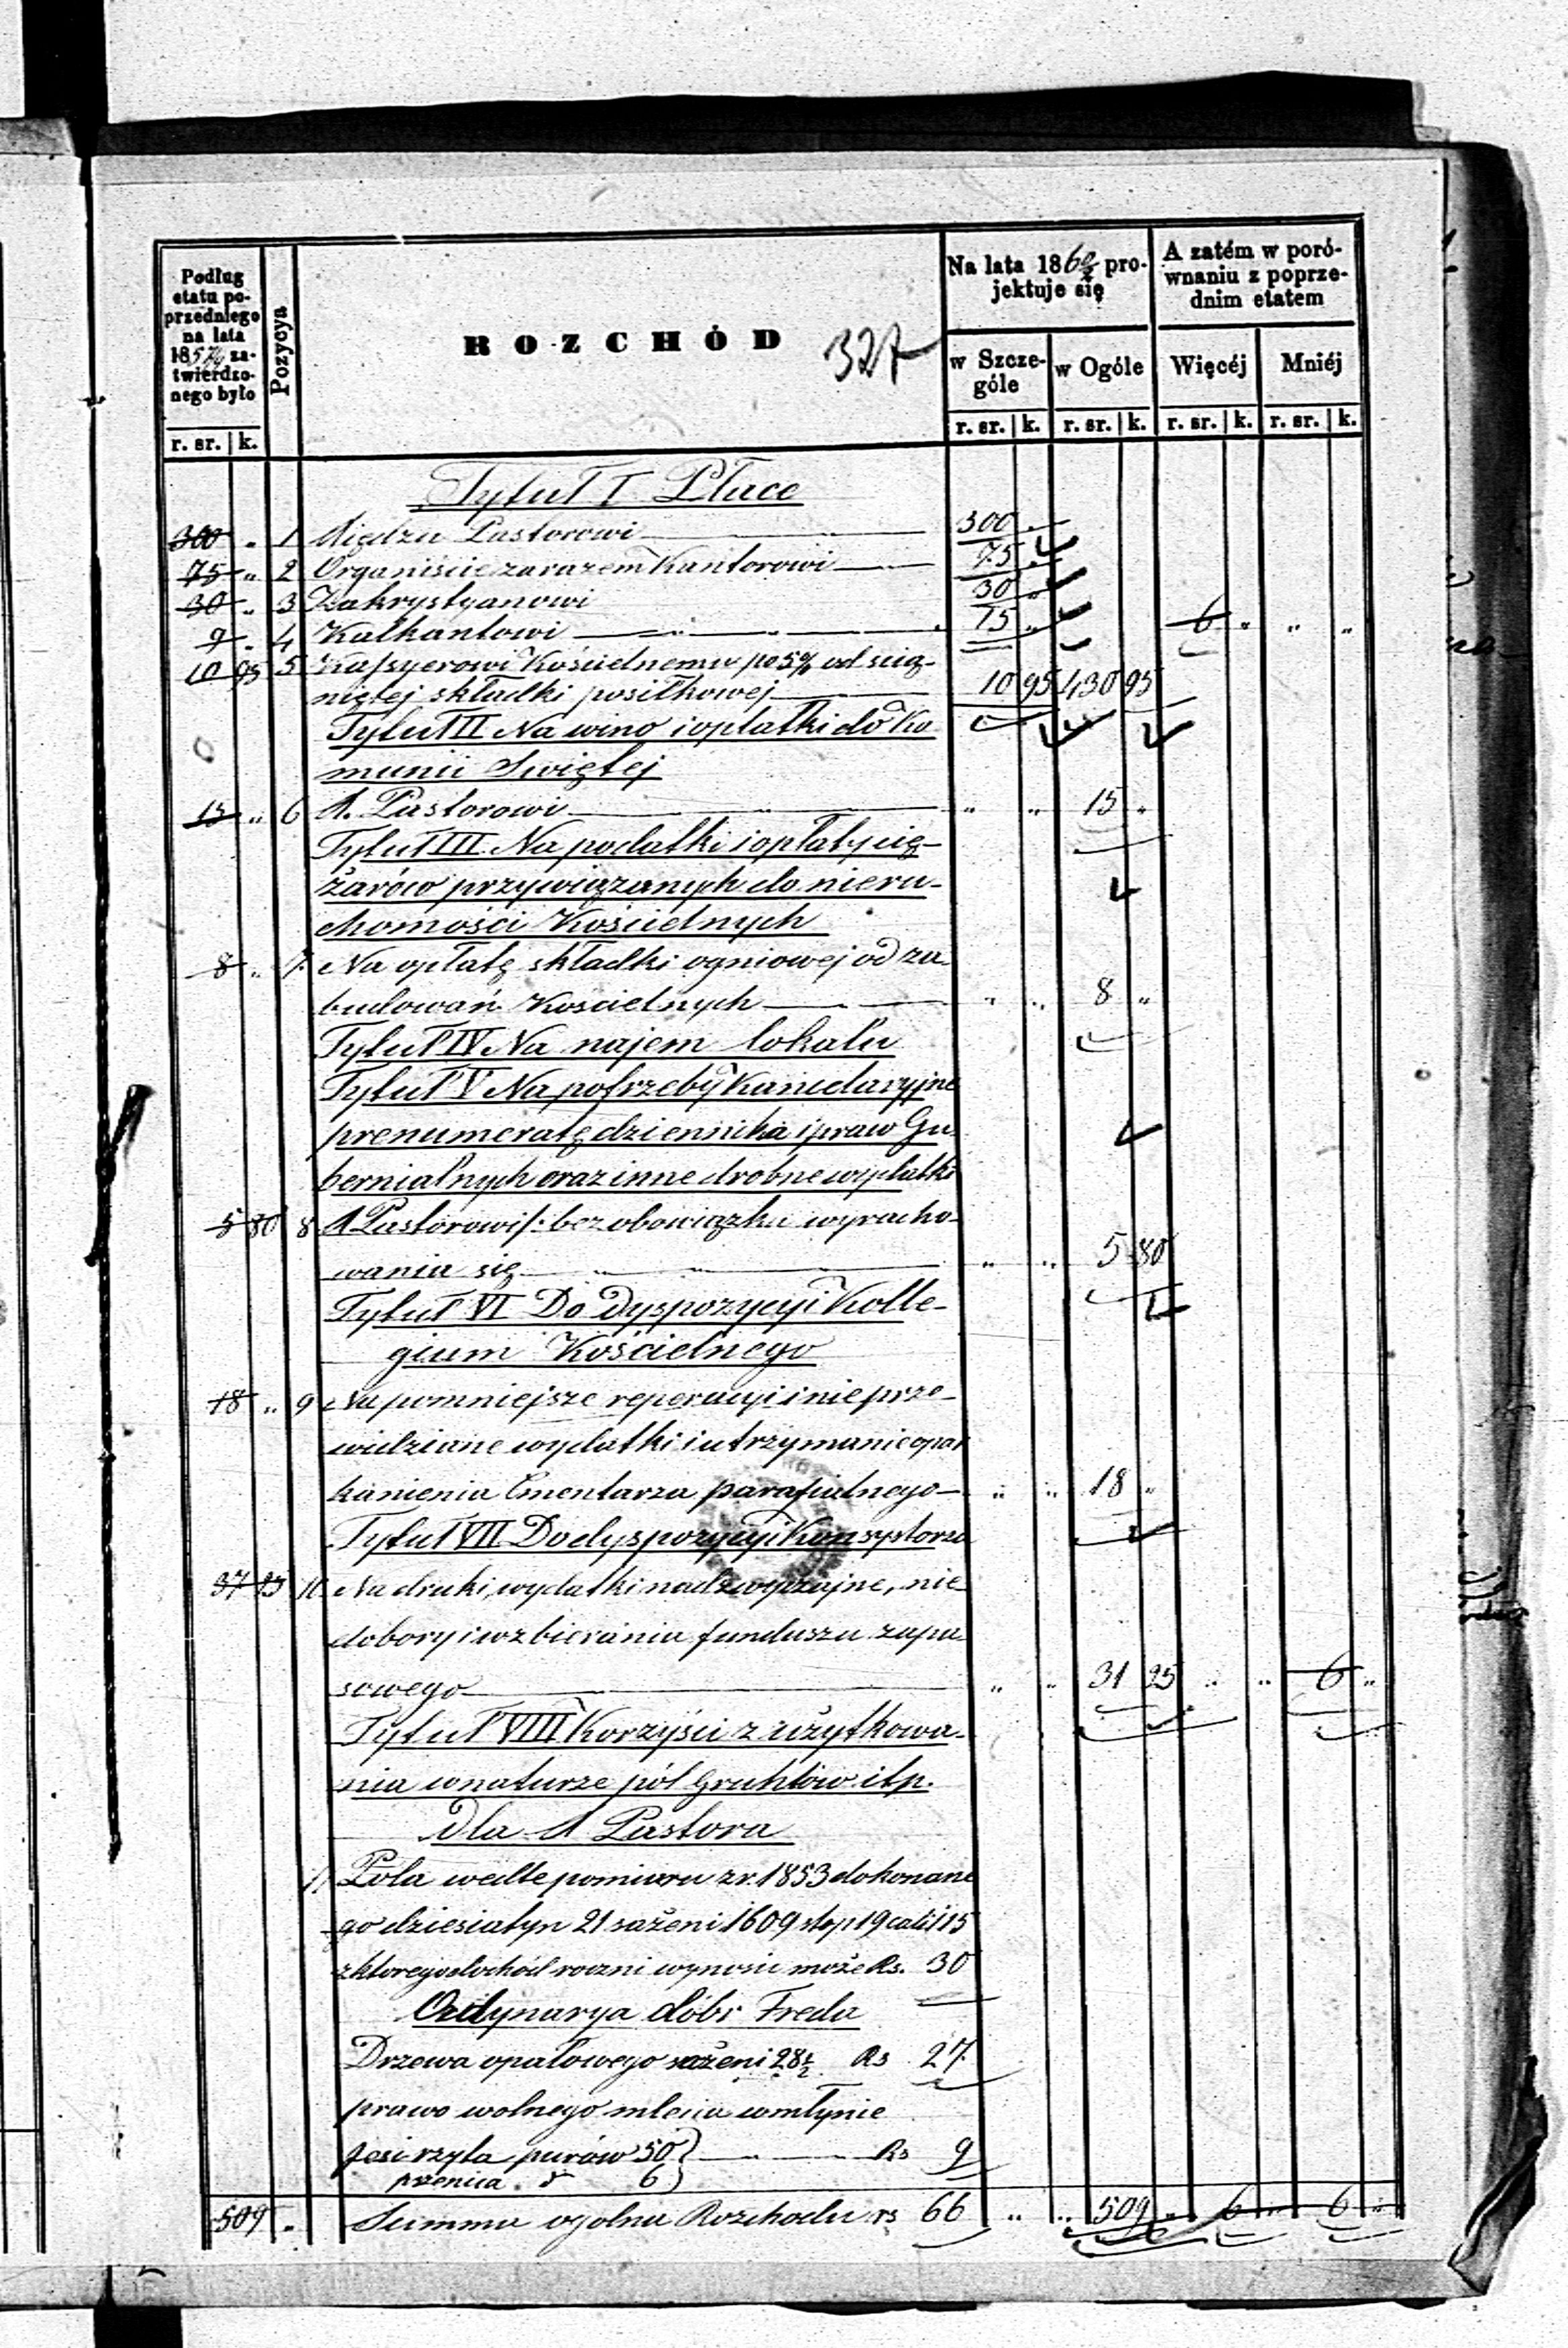 Podług etatu poprzedniego na lata 185 7/9 zatwierdzonego było
Pozycya
ROZCHÓD
327
Na lata 186 0/2 projektuje się
A zatém w porównaniu z poprzednim etatem
w Szczególe
w Ogóle
Więcéj
Mniéj
r. sr. k. r. sr. k. r. sr. k. r. sr. k. r. sr. k.
Tytuł I Płace
300 " 1 Xiędzu Pastorowi 300 "
75 " 2 Organiście zarazem Kantorowi 75 "
30 " 3 Zakrystyanowi 30 "
9 " 4 Kalkantowi 15 " 6 " " "
10 95 5 Kassyerowi Kościelnemu po 5% od scią-
gniętej składki posiłkowej 10 95 430 95
Tytuł II Na wino i opłatki do Ko
munii Swiętej
15 " 6 X. Pastorowi " " 15 "
Tytuł III Na podatki i opłaty cię-
żarów przywiązanych do nieru-
chomości Kościelnych
8 " 7. Na opłatę składki ogniowej od za-
budowań Kościelnych " " 8 "
Tytuł IV Na najem lokalu
Tytuł V Na potrzeby Kancelaryjne
prenumeratę dziennika i praw Gu-
bernialnych oraz inne drobne wydatki
5 80 8 X Pastorowi /: bez obowiązku wyracho-
wania się " " 5 80
Tytuł VI Do Dyspozycyi Kolle-
gium Kościelnego
18 " 9 Na pomniejsze reperacyi i nieprze-
widziane wydatki i utrzymanie opar
kanienia Cmentarza parafialnego " " 18 "
Tytuł VII Do dyspozycyi Konsystorza
37 25 10 Na druki, wydatki nadzwyczajne, nie
dobory i wzbierania funduszu zapa-
sowego " " 31 25 " " 6 "
Tytuł VIII Korzyści z użytkowa-
nia w naturze pól Gruntów itp.
Dla X Pastora
11 Pola wedle pomiaru z r. 1853 dokonane
go dziesiatyn 21 sażeni 1609 stop 19 cali 115
z którego dochód roczni wynosić może Rs. 30
Ordynarya dóbr Freda
Drzewa opałowego sażeni 28½ Rs 27
prawo wolnego mlewa w młynie
żyta purów 50 } Rs 9
pszenica 6 }
509 " Summa ogólna Rozchodu rs 66 " " 509 " 6 " 6 "